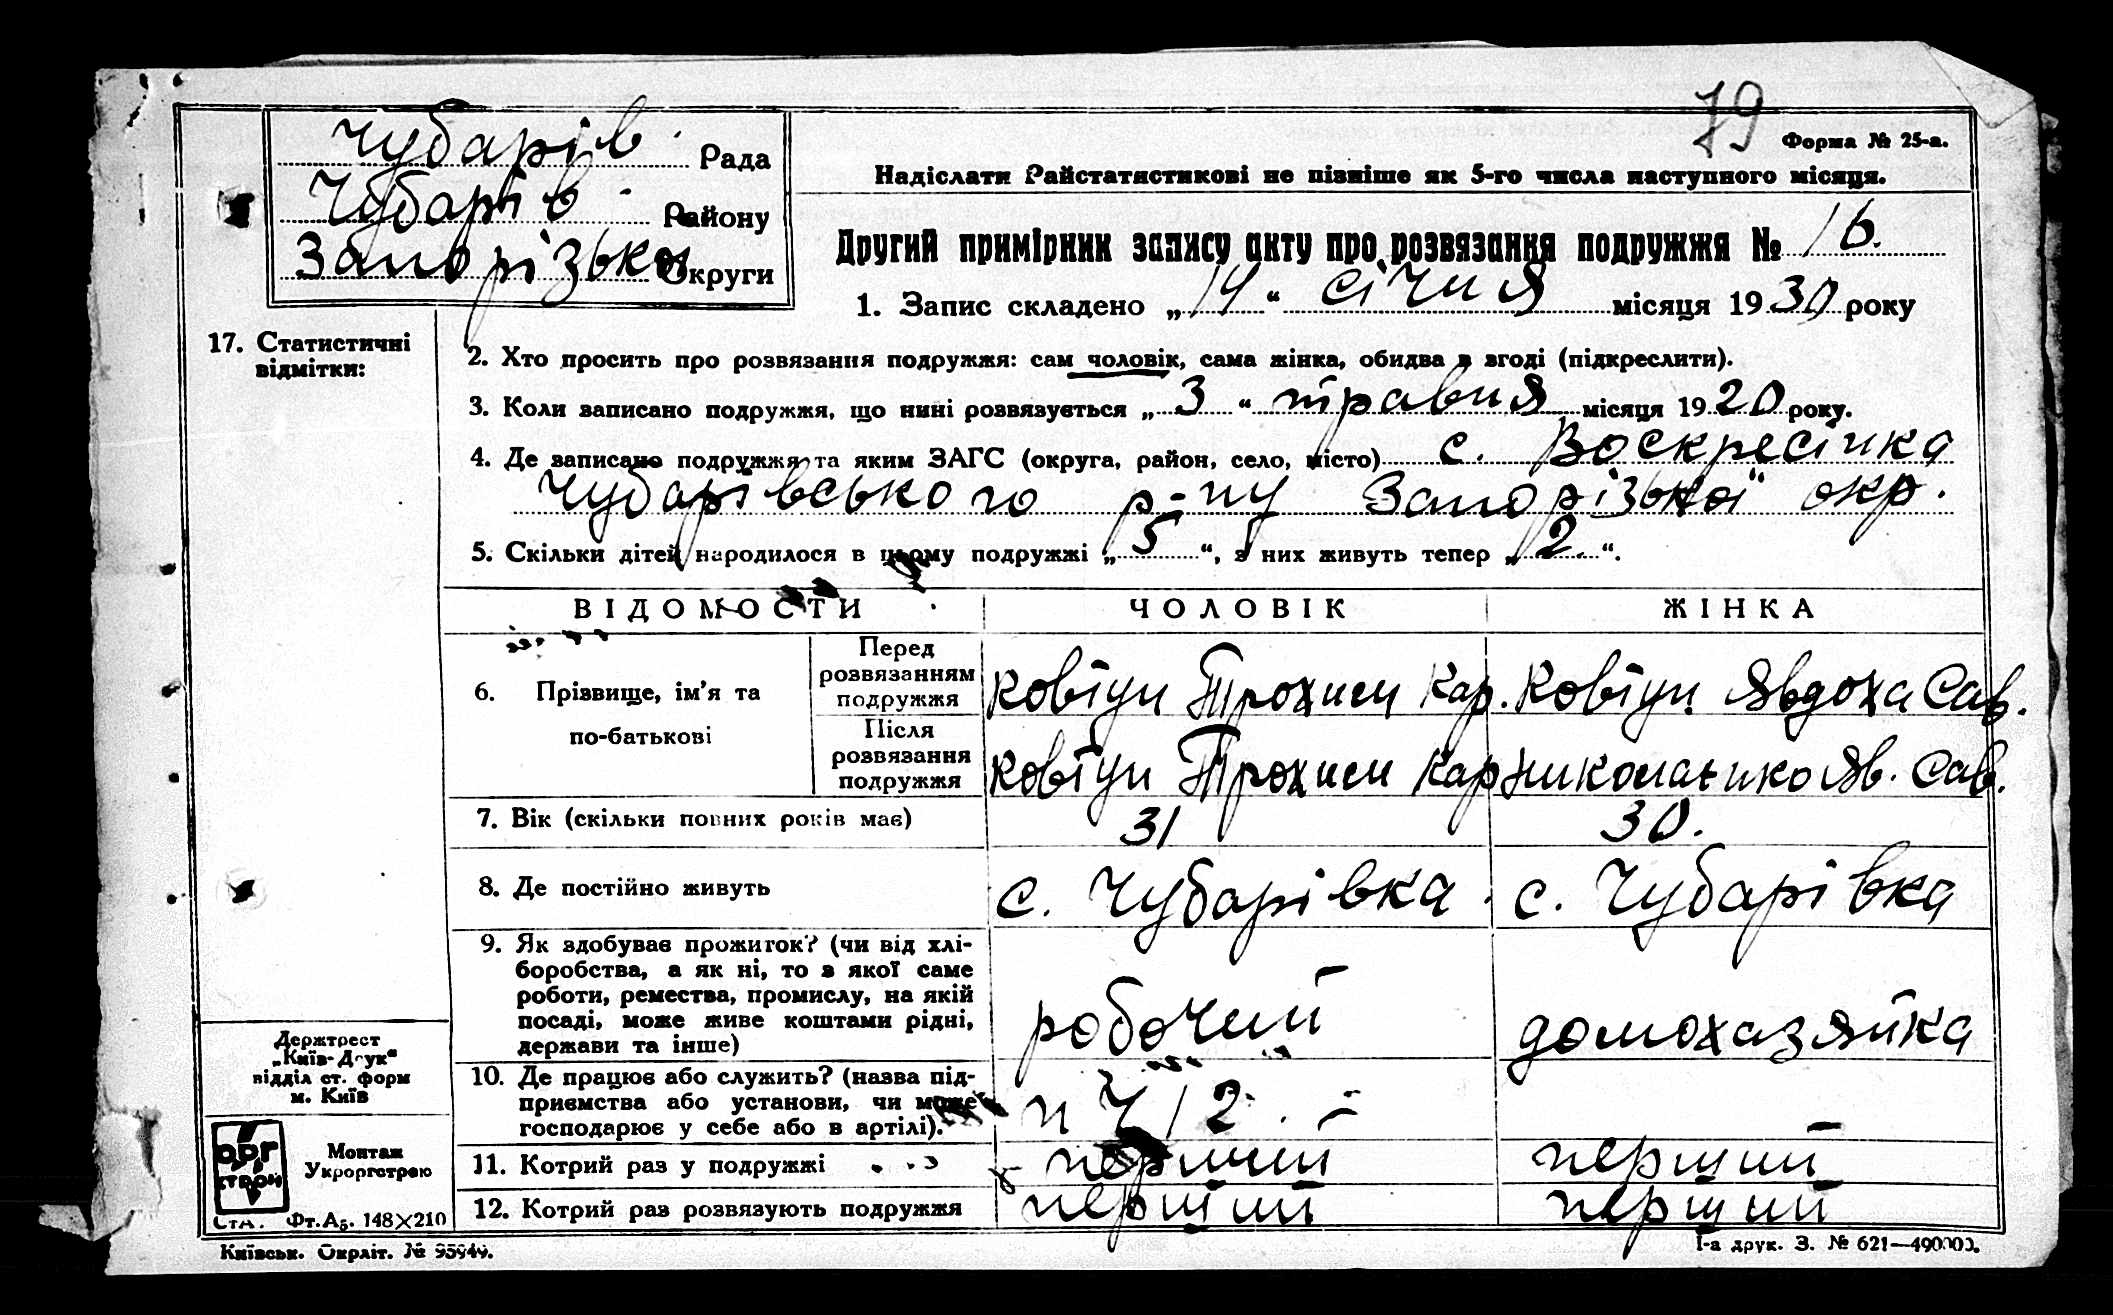 79
Чубарів. Рада
Чубарів. Району
Запорізька Округи
Форма № 25-а.
Надіслати Райстатистикові не пізніше як 5-го числа наступного місяця.
Другий примірник запису акту про розвязання подружжя № 16.
1. Запис складено „14“ січня місяця 1930 року
17. Статистичні
відмітки:
2. Хто просить про розвязання подружжя: сам чоловік, сама жінка, обидва в згоді (підкреслити).
3. Коли записано подружжя, що нині розвязується „3“ травня місяця 1920 року.
4. Де записано подружжя та яким ЗАГС (округа, район, село, місто) с. Воскресінка
Чубарівського р-ну Запорізької окр.
5. Скільки дітей народилося в цьому подружжі „5“, з них живуть тепер „2.“.
ВІДОМОСТИ ЧОЛОВІК ЖІНКА
6. Прізвище, ім'я та по-батькові
Перед розвязанням подружжя
Ковтун Трохим Кар. Ковтун Явдоха Сав.
Після розвязання подружжя
Ковтун Трохим Кар Николаенко Яв. Сав.
7. Вік (скільки повних років має) 31 30.
8. Де постійно живуть с. Чубарівка. с. Чубарівка
9. Як здобуває прожиток? (чи від хлі-
боробства, а як ні, то з якої саме
роботи, ремества, промислу, на якій
посаді, може живе коштами рідні,
держави та інше)
робочий домохазяйка
10. Де працює або служить? (назва під-
приємства або установи, чи може
господарює у себе або в артілі).
11. Котрий раз у подружжі перший перший
12. Котрий раз розвязують подружжя перший перший
Держтрест
„Київ-Друк“
відділ ст. форм
м. Київ
Монтаж
Укроргстрою
Ста. Фт.А5. 148×210
Київськ. Окрліт. № 95949.
І-а друк. З. № 621—490000.